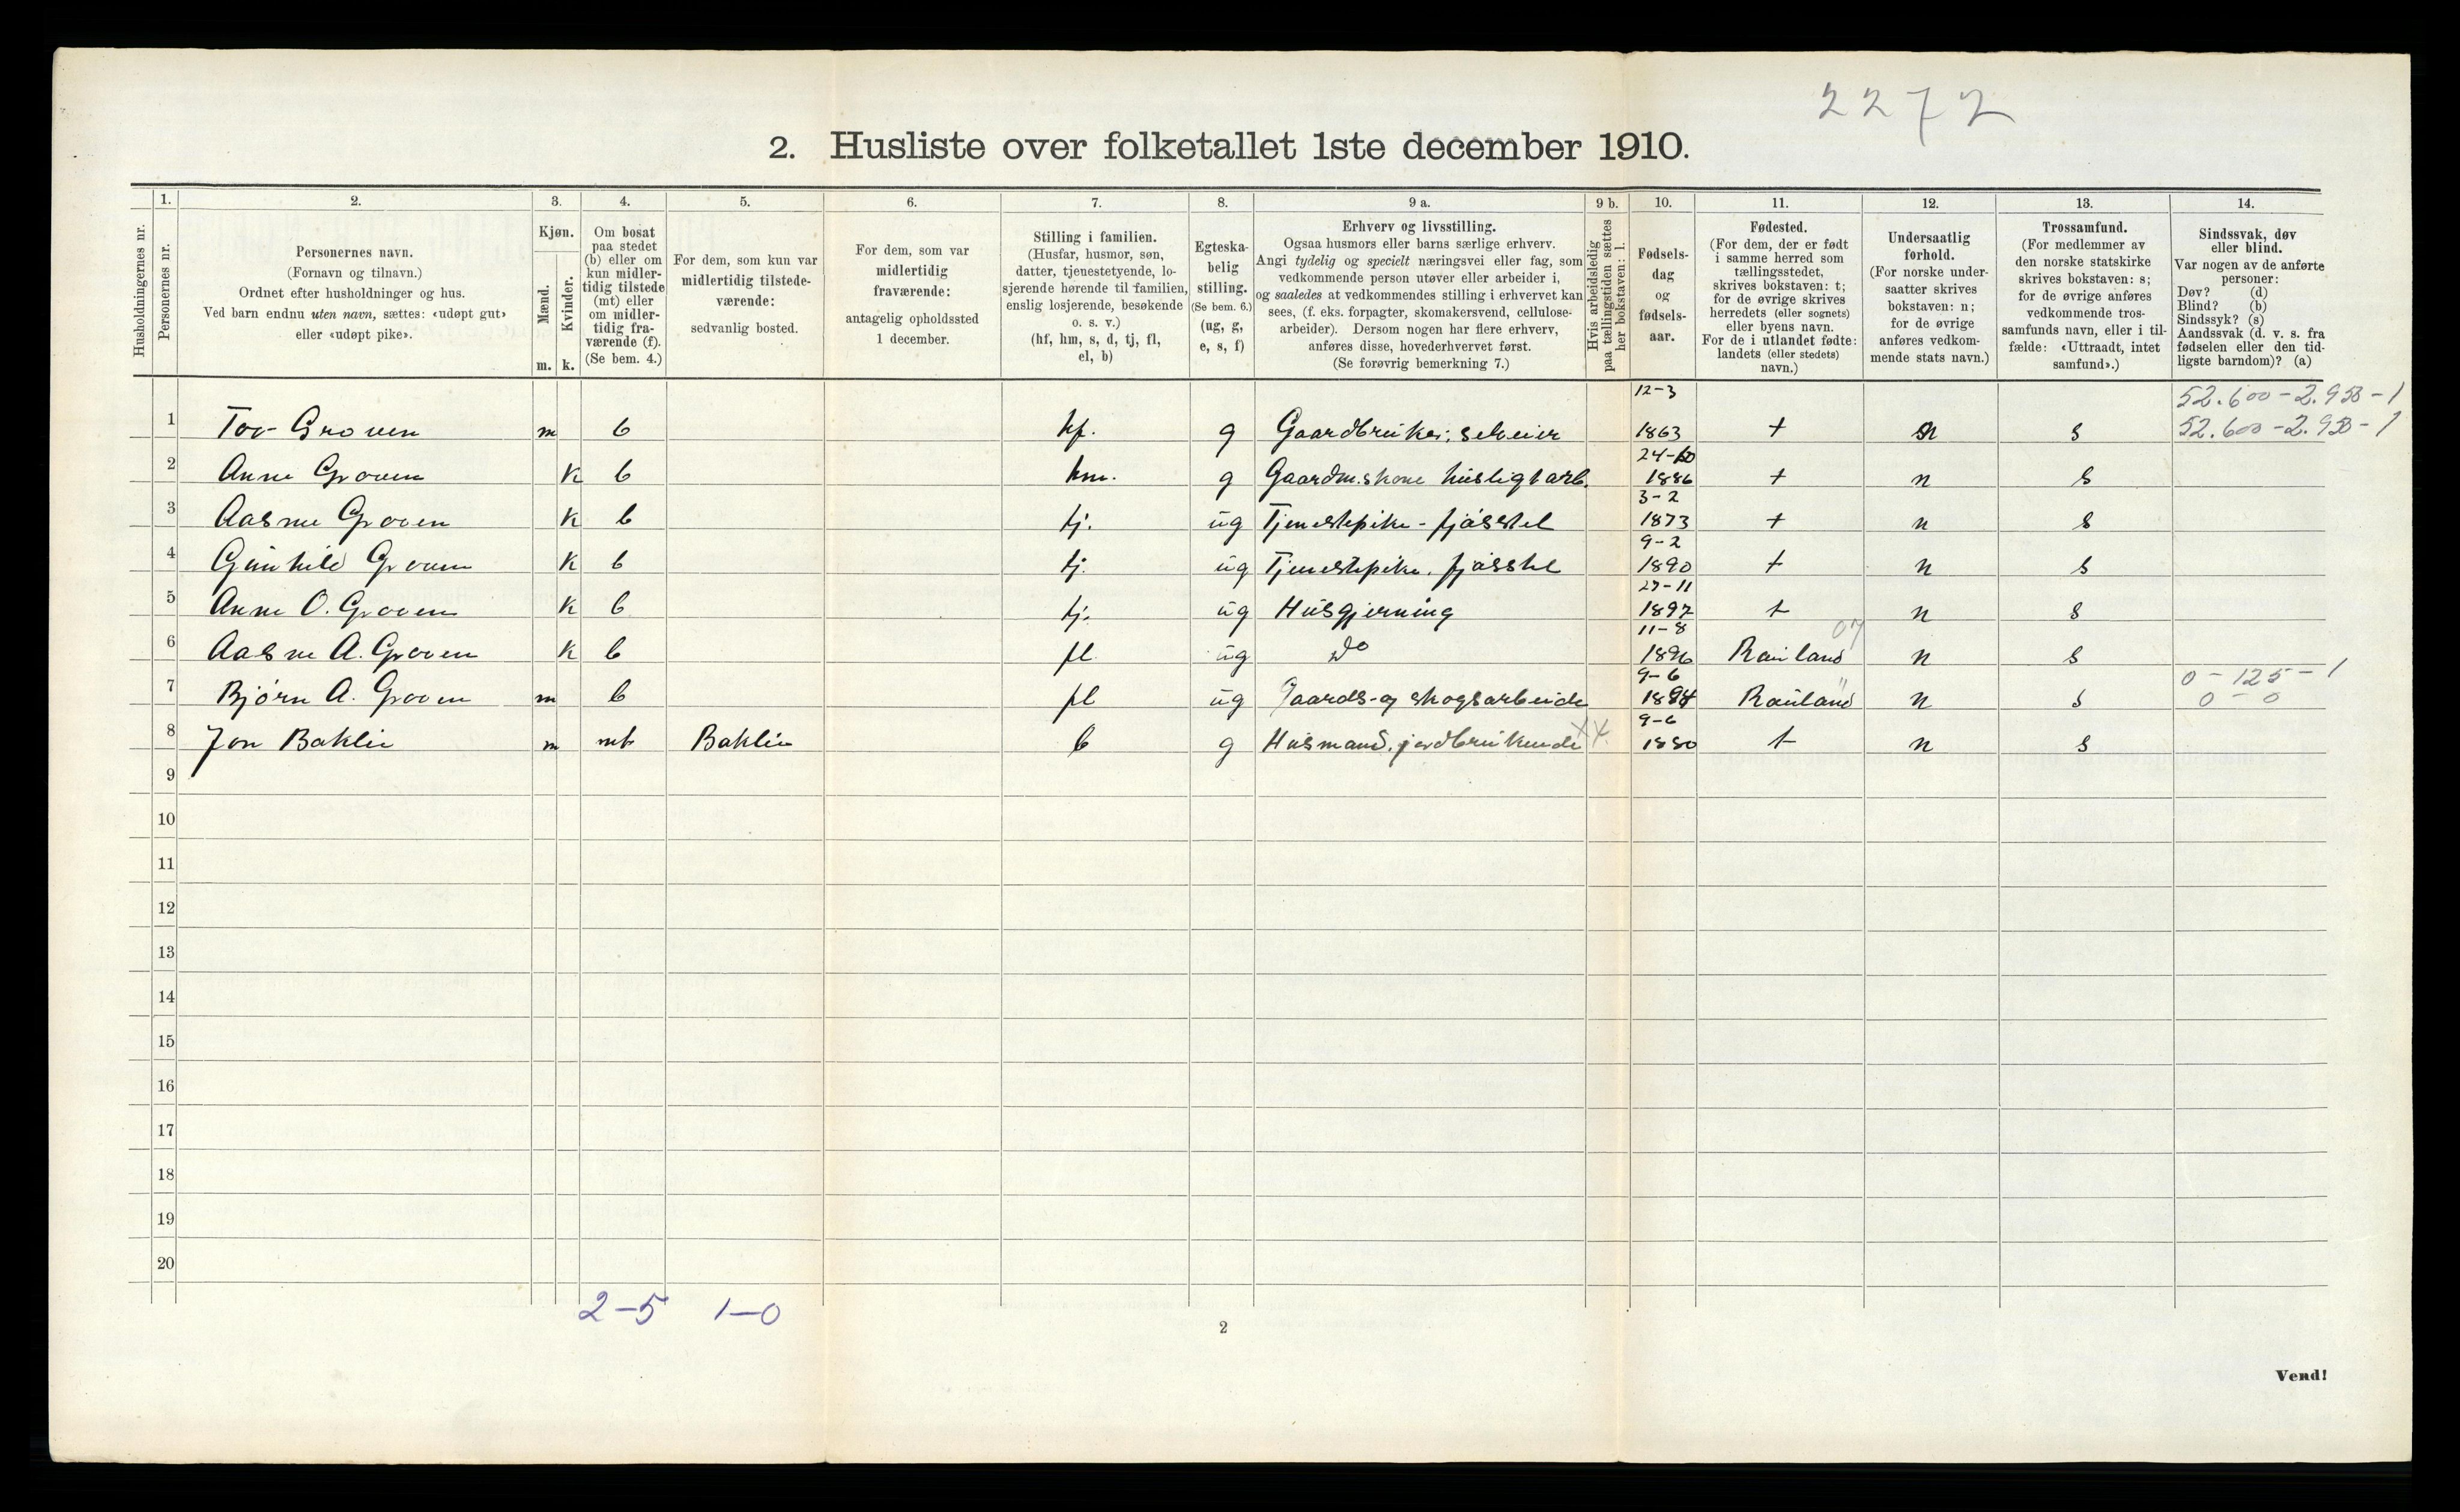 2272
2. Husliste over folketallet 1ste december 1910.
Husholdningernes nr.
1.
Personernes nr.
2.
Personernes navn.
(Fornavn og tilnavn.)
Ordnet efter husholdninger og hus.
Ved barn endnu uten navn, sættes: «udøpt gut»
eller «udøpt pike».
3.
Kjøn.
Mænd.
Kvinder.
m. k.
4.
Om bosat
paa stedet
(b) eller om
kun midler-
tidig tilstede
(mt) eller
om midler-
tidig fra-
værende (f).
(Se bem. 4.)
5.
For dem, som kun var
midlertidig tilstede-
værende:
sedvanlig bosted.
6.
For dem, som var
midlertidig
fraværende:
antagelig opholdssted
1 december.
7.
Stilling i familien.
(Husfar, husmor, søn,
datter, tjenestetyende, lo-
sjerende hørende til familien,
enslig losjerende, besøkende
o. s. v.)
(hf, hm, s, d, tj, fl,
el, b)
8.
Egteska-
belig
stilling.
(Se bem. 6.)
(ug, g,
e, s, f)
9 a.
Erhverv og livsstilling.
Ogsaa husmors eller barns særlige erhverv.
Angi tydelig og specielt næringsvei eller fag, som
vedkommende person utøver eller arbeider i,
og saaledes at vedkommendes stilling i erhvervet kan
sees, (f. eks. forpagter, skomakersvend, cellulose-
arbeider). Dersom nogen har flere erhverv,
anføres disse, hovederhvervet først.
(Se forøvrig bemerkning 7.)
9 b.
Hvis arbeidsledig
paa tællingstiden sættes
her bokstaven: l.
10.
Fødsels-
dag
og
fødsels-
aar.
11.
Fødested.
(For dem, der er født
i samme herred som
tællingsstedet,
skrives bokstaven: t;
for de øvrige skrives
herredets (eller sognets)
eller byens navn.
For de i utlandet fødte:
landets (eller stedets)
navn.)
12.
Undersaatlig
forhold.
(For norske under-
saatter skrives
bokstaven: n;
for de øvrige
anføres vedkom-
mende stats navn.)
13.
Trossamfund.
(For medlemmer av
den norske statskirke
skrives bokstaven: s;
for de øvrige anføres
vedkommende tros-
samfunds navn, eller i til-
fælde: «Uttraadt, intet
samfund».)
14.
Sindssvak, døv
eller blind.
Var nogen av de anførte
personer:
Døv? (d)
Blind? (b)
Sindssyk? (s)
Aandssvak (d. v. s. fra
fødselen eller den tid-
ligste barndom)? (a)
12-3
1 Tov Groven m b hf. g Gaardbruker; selveier 1863 t n s
24-10
2 Anne Groven k b hm. g Gaardm.skone husligt arb. 1886 t n s
3-2
3 Aasne Groven k b tj. ug Tjenestepike - fjøsstel 1873 t n s
9-2
4 Gunhild Groven k b tj. ug Tjenestepike. fjøsstel 1890 t n s
27-11
5 Anne O. Groven k b tj. ug Husgjerning 1892 t n s
11-8
6 Aasne A. Groven k b fl. ug do 1896 Rauland n s
9-6
7 Bjørn A. Groven m b fl ug Gaards- og skogsarbeide 1894 Rauland n s 0-125-1
0-0
9-6
8 Jon Baklie m mt Baklie b g Husmand, jordbrukende 1880 t n s
9
10
11
12
13
14
15
16
17
18
19
20
2-5 1-0
2
Vend!